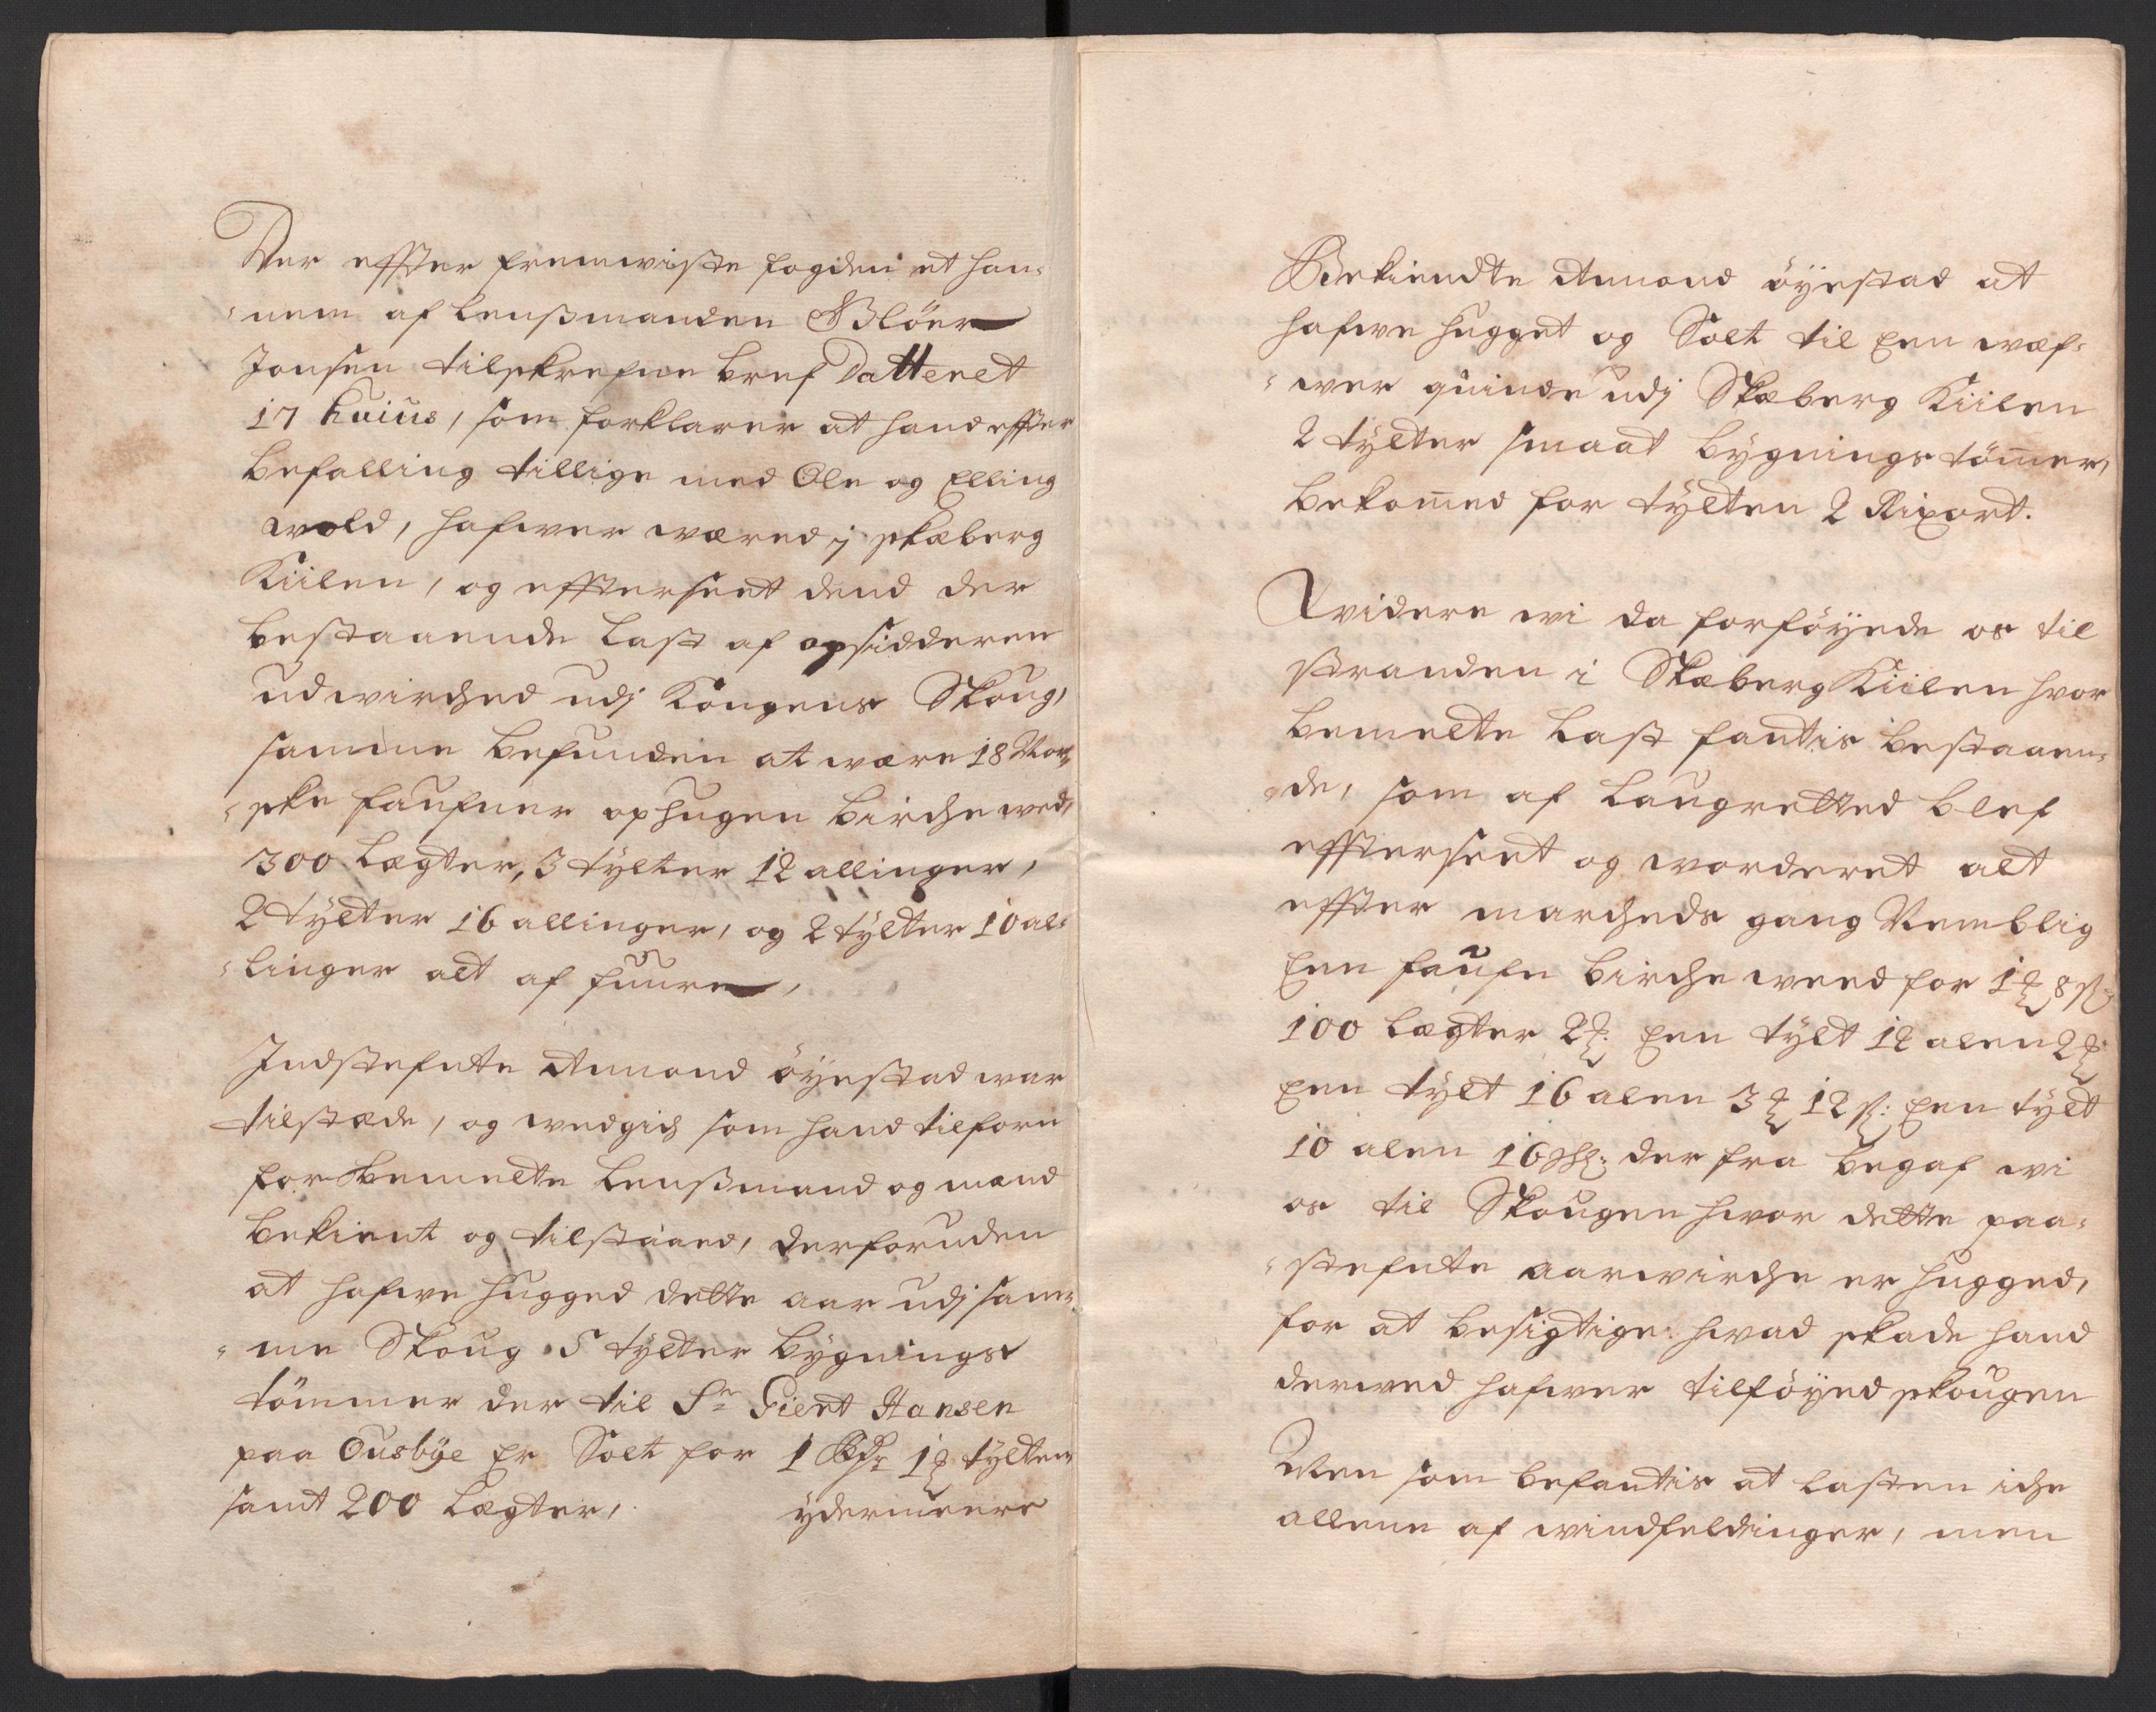 Der effter fremwiste fogden et han-
nem af Lensmanden Glöer
Jonsen tilskrefne bref Datteret
17 huius, som forklarer at hand effter
befalling tillige med Ole og Elling
wold, hafwer wæred i skæberg
Kiilen, og efftersent dend der
bestaaende Last af opsidderen
udwirched udj Kongens Skoug,
samme befunden at wære 18 Nor-
ske faufner ophugen birche wed,
300 Lægter, 3 tylter 12 allinger,
2 tylter 16 allinger, og 2 tylter 10 al-
linger alt af fuure,
Indstefnte Amond öyestad war
tilstæde, og wedgich som hand tilforn
for bemelte Lensmand og mænd
bekient og tilstaaed, derforuden
at hafwe hugged dette aar udj sam-
me Skoug 5 tylter bygnings
tömmer der til Sr Giert Hansen
paa Ousbye er Solt for 1 Rdr 1 tylten
samt 200 Lægter,
ydermeere
Bekiendte Amond öyestad at
hafwe hugget og Solt til Een wæf-
wer quinde udj Skæberg Kiilen
2 tylter smaat bygnings tömer,
bekomed for tylten 2 Rixort.
Widere wi da forföyede os til
stranden i Skæberg Kiilen hvor
bemelte Last fantis bestaaen-
de, som af Laugretted blef
efftersent og worderet alt
effter marcheds gang Nemblig
Een faufn birche weed for 1 8 s
100 Lægter 2 Een tylt 12 alen 2
Een tylt 16 alen 3 12 s: Een tylt
10 alen 16 s: der fra begaf wi
os til Skougen hwor dette paa-
stefnte aarwirche er hugged,
for at besigtige hwad skade hand
derwed hafwer tilföyed skougen
Men som befantis at Lasten iche
allene af windfeldinger, men